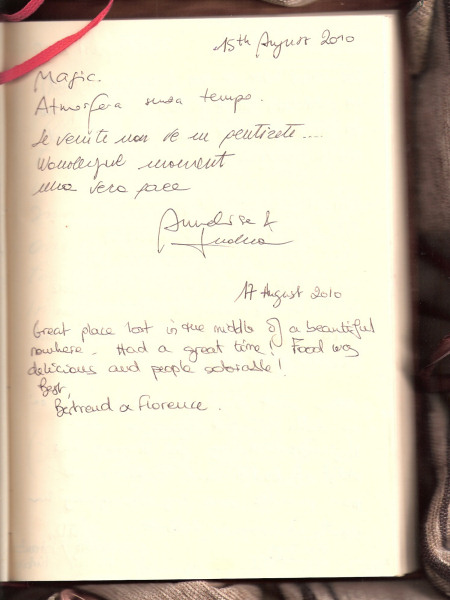 15th August 2010
Magic.
Atmosfera senza tempo.
Se venite non ve ne pentirete....
Wonderful moment
una vera pace
Annalisa &
Andrea
17 August 2010
Great place lost in the middle of a beautiful
nowhere - Had a great time! Food was
delicious and people adorable!
Best,
Bertrand & Florence.